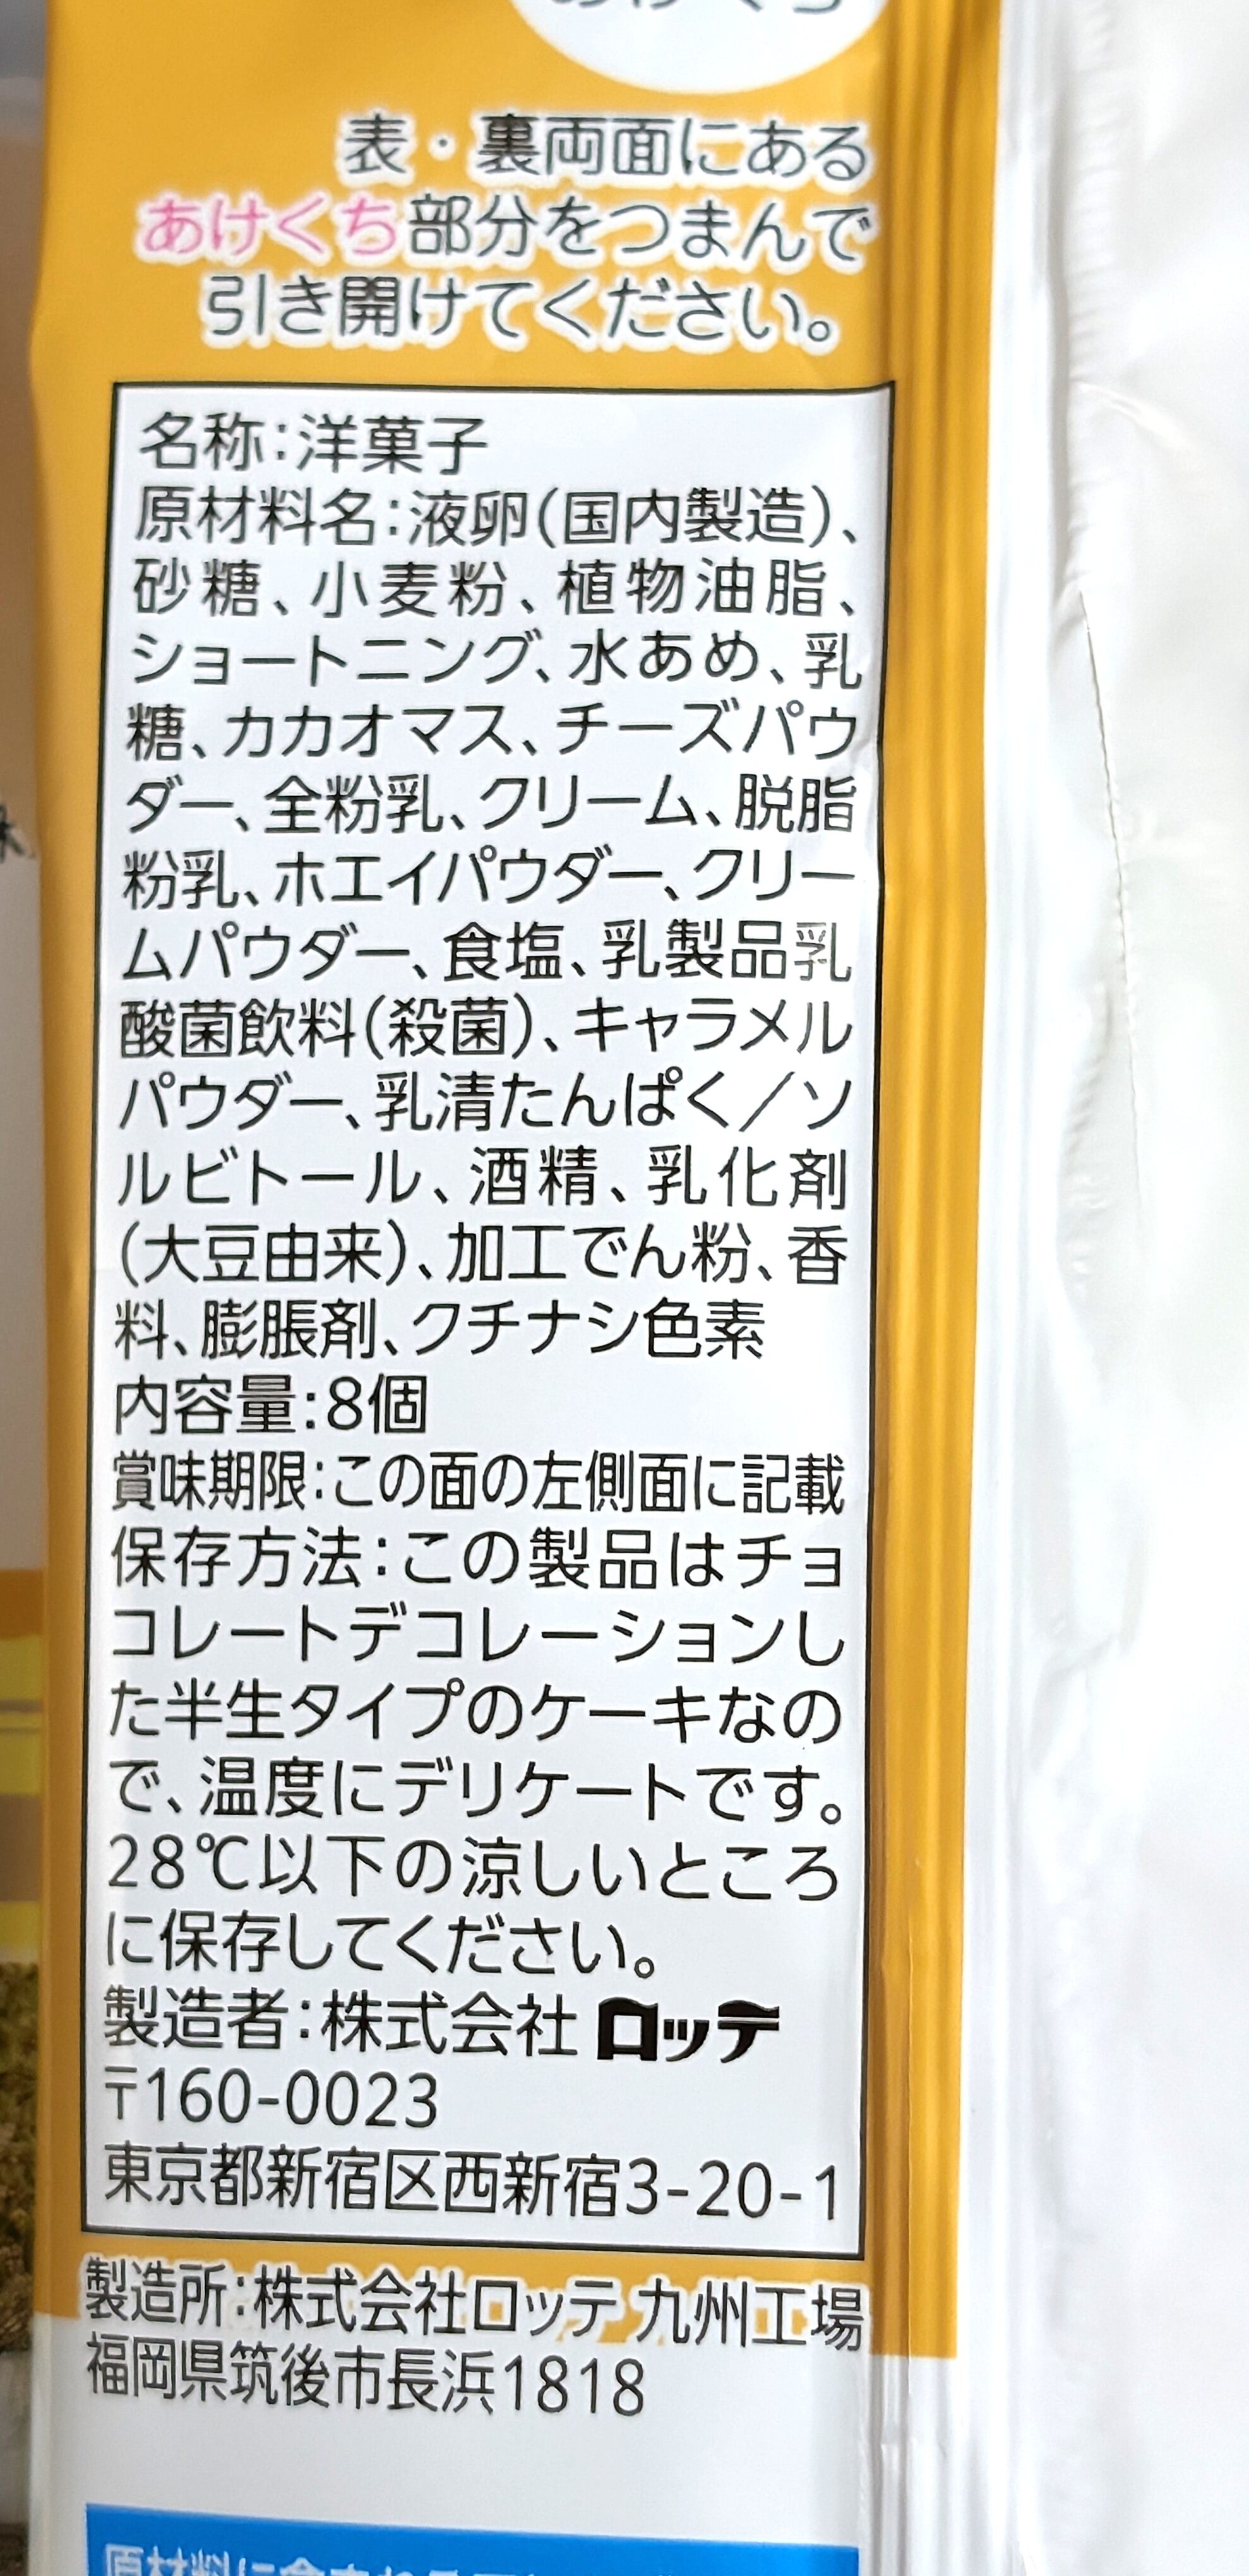 表・裏両面にある
あけくち部分をつまんで
引き開けてください。
名称:洋菓子
原材料名:液卵(国内製造)、
砂糖、小麦粉、植物油脂、
ショートニング、水あめ、乳
糖、カカオマス、チーズパウ
ダー、全粉乳、クリーム、脱脂
粉乳、ホエイパウダー、クリー
ムパウダー、食塩、乳製品乳
酸菌飲料(殺菌)、キャラメル
パウダー、乳清たんぱく/ソ
ルビトール、酒精、乳化剤
(大豆由来)、加工でん粉、香
料、膨脹剤、クチナシ色素
内容量:8個
賞味期限:この面の左側面に記載
保存方法:この製品はチョ
コレートデコレーションし
た半生タイプのケーキなの
で、温度にデリケートです。
28℃以下の涼しいところ
に保存してください。
製造者:株式会社 ロッテ
〒160-0023
東京都新宿区西新宿3-20-1
製造所:株式会社ロッテ 九州工場
福岡県筑後市長浜1818